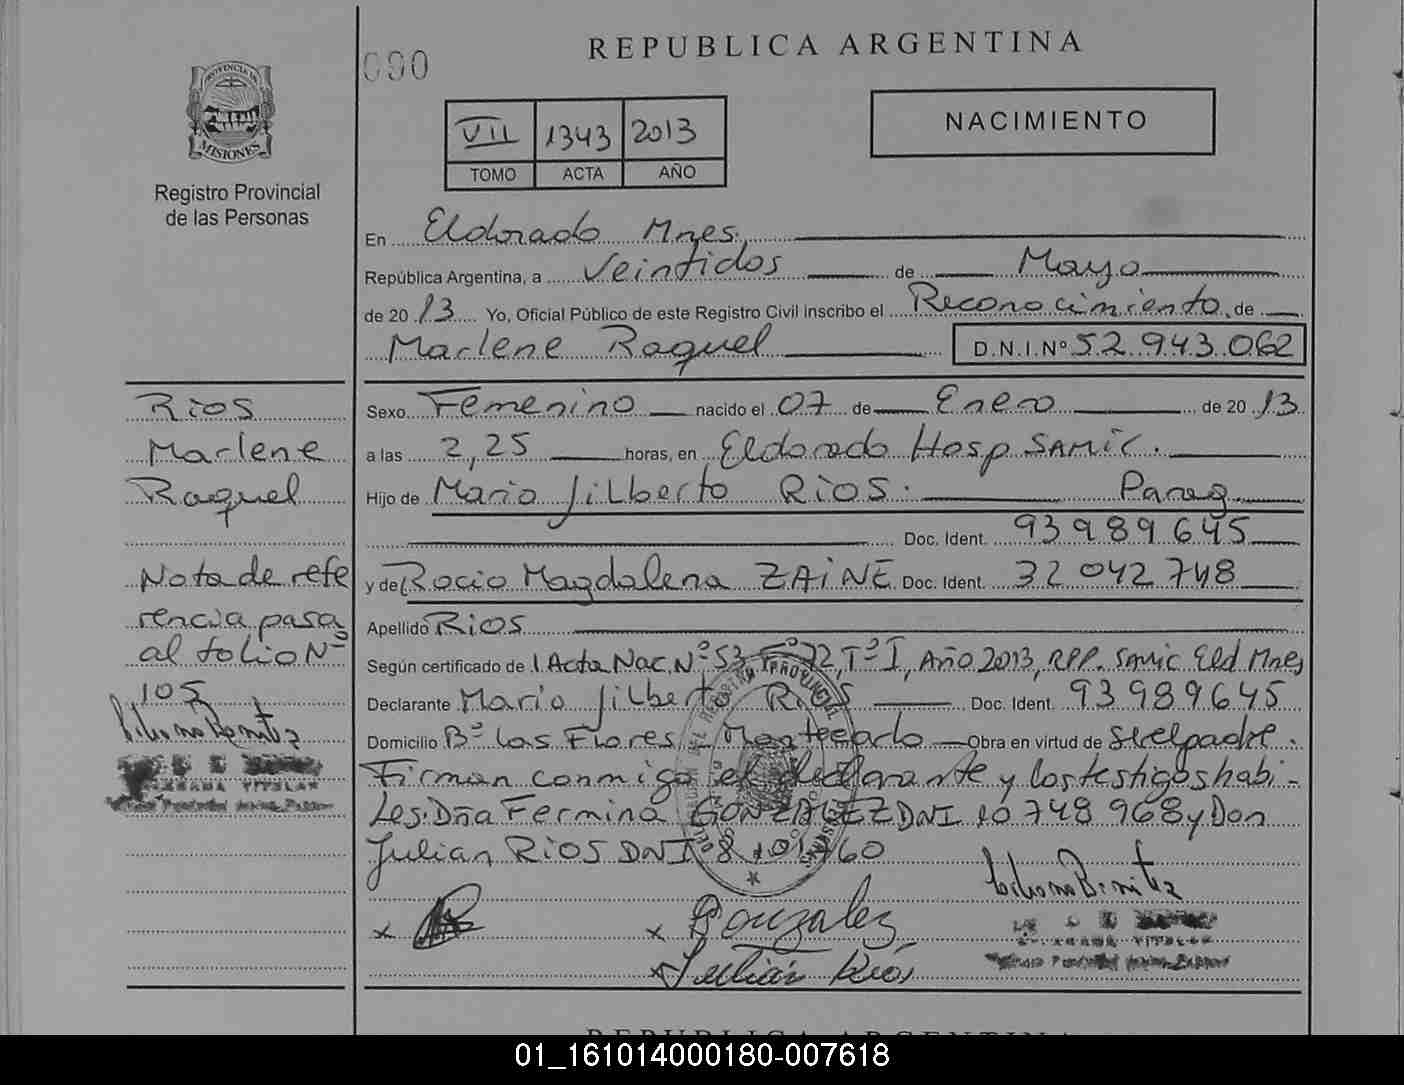 090
REPUBLICA ARGENTINA
PROVINCIA DE
MISIONES
Registro Provincial
de las Personas
VII 1343 2013
TOMO ACTA AÑO
NACIMIENTO
En Eldorado Mnes.
República Argentina, a Veintidos de Mayo
de 2013 Yo, Oficial Público de este Registro Civil inscribo el Reconocimiento de
Marlene Raquel D.N.I.Nº 52.943.062
Sexo Femenino nacido el 07 de Enero de 2013
a las 2,25 horas, en Eldorado Hosp SAMIC.
Hijo de Mario Jilberto RIOS. Parag
Doc. Ident. 93 989 645
y de Rocio Magdalena ZAINE Doc. Ident. 32 042 748
Apellido RIOS
Según certificado de 1 Acta Nac. Nº 53 Fº 72 Tº I, Año 2013, RPP. SAMIC Eld Mnes
Declarante Mario Jilberto RIOS Doc. Ident. 93 989 645
Domicilio Bº Las Flores - Montecarlo Obra en virtud de ser el padre.
Firman conmigo el declarante y los testigos habi-
les. Dña Fermina GONZALEZ DNI 10 748 968 y Don
Julian RIOS DNI 8
x
x Gonzalez
x Julián Ríos
Benitez
TITULAR
Rios
Marlene
Raquel
Nota de refe
rencia pasa
al folio Nº
105
Benitez
TITULAR
REPUBLICA ARGENTINA
01_161014000180-007618